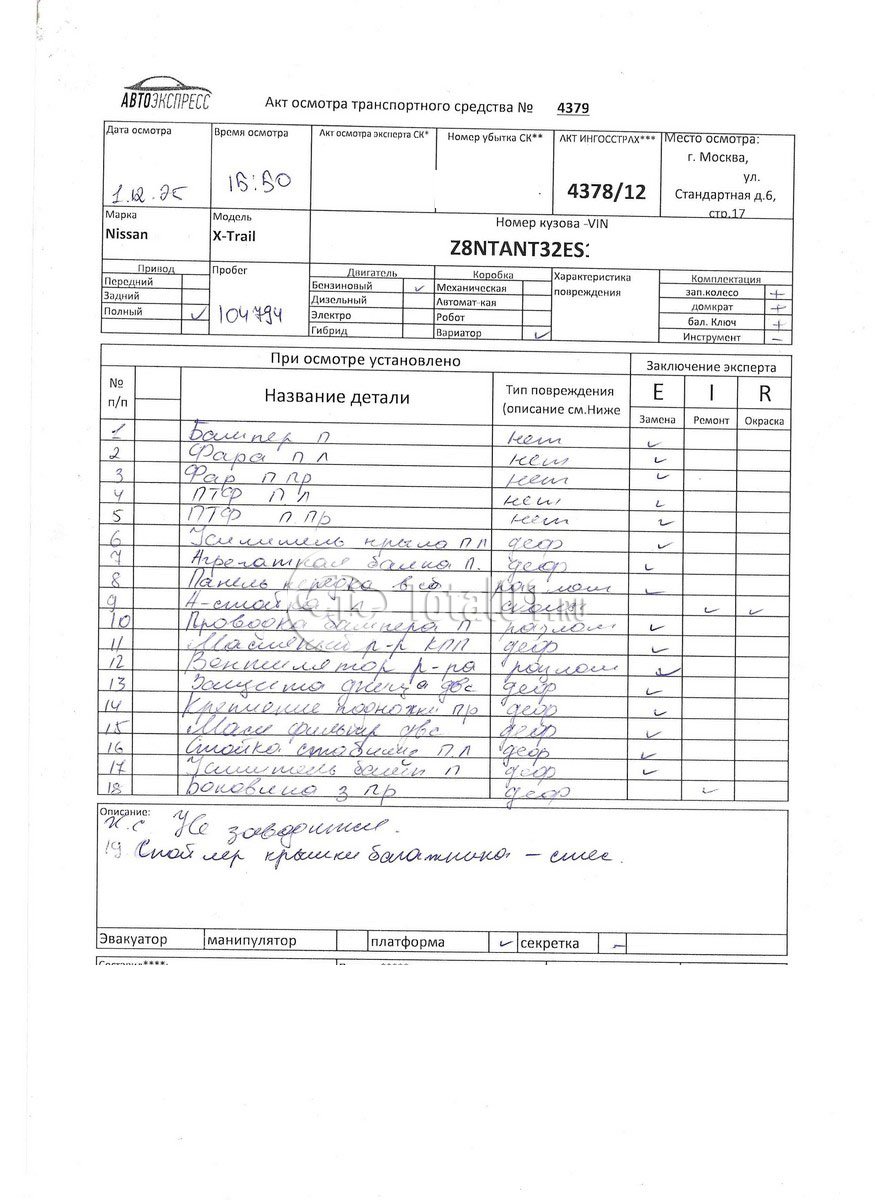 АВТОЭКСПРЕСС
Акт осмотра транспортного средства № 4379
Дата осмотра Время осмотра Акт осмотра эксперта СК* Номер убытка СК** АКТ ИНГОССТРАХ*** Место осмотра:
г. Москва,
ул.
1.12.25 15:50 4378/12 Стандартная д.6,
стр.17
Марка Модель Номер кузова -VIN
Nissan X-Trail Z8NTANT32ES
Привод Пробег Двигатель Коробка Характеристика повреждения Комплектация
Передний Бензиновый ✓ Механическая зап.колесо +
Задний Дизельный Автомат-кая домкрат +
Полный ✓ 104794 Электро Робот бал. Ключ +
Гибрид Вариатор ✓ Инструмент –
При осмотре установлено Заключение эксперта
№ п/п Название детали Тип повреждения (описание см.Ниже E I R
Замена Ремонт Окраска
1 Бампер п нет ✓
2 Фара п л нет ✓
3 Фар п пр нет ✓
4 ПТФ п л нет ✓
5 ПТФ п. пр нет ✓
6 Усилитель крыла п л деф ✓
7 Агрегатная балка п. деф ✓
8 Панель передка в сб разлом ✓
9 А-стойка сколы ✓ ✓
10 Проводка бампера п разлом ✓
11 Масляный р-р КПП деф ✓
12 Вентилятор р-ра разлом ✓
13 Защита днища двс деф ✓
14 Крепление подножки пр деф ✓
15 Масл фильтр двс деф ✓
16 Стойка стабилиз п.л деф ✓
17 Усилитель бамп п деф ✓
18 Боковина з пр деф ✓
TotalUT.RU
Описание:
Не заводится.
19 Спойлер крышки багажника – стес.
Эвакуатор манипулятор платформа ✓ секретка –